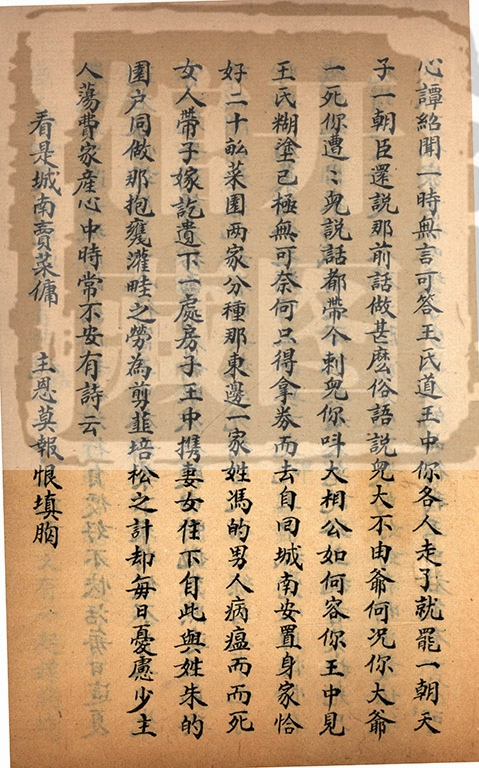 心譚紹聞一時無言可答王氏道王中你各人走了就罷一朝天
子一朝臣還說那前話做甚麼俗語說兒大不由爺何況你大爺
一死你遭〻兒說話都帶个刺兒你叫大相公如何容你王中見
王氏糊塗已極無可奈何只得拿券而去自回城南安置身家恰
好二十畝菜園两家分種那東邊一家姓馮的男人病瘟而而死
女人帶子嫁訖遺下一處房子王中携妻女住下自此與姓朱的
園户同做那抱甕灌畦之勞為剪韭培松之計却每日憂慮少主
人蕩費家產心中時常不安有詩云
看是城南賣菜傭 主恩莫報恨填胸